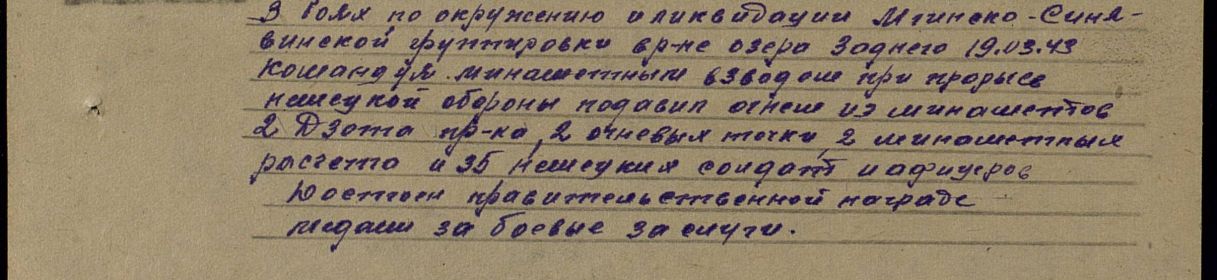 В боях по окружению и ликвидации Мгинско-Синя-
винской группировки в р-не озера Заднего 19.03.43
командуя минометным взводом при прорыве
немецкой обороны подавил огнем из минометов
2 Дзота пр-ка, 2 огневых точки, 2 минометных
расчета и 35 немецких солдат и афицеров
Достоен правительственной награде
медали за боевые заслуги.